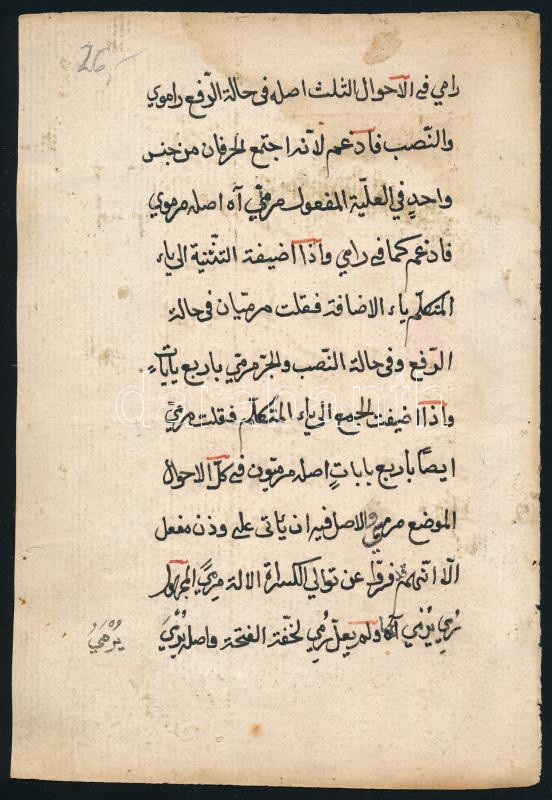 26,-
رامي في الاحوال الثلث اصله في حالة الرّفع راموي
والنّصب فادغم لانّه اجتمع الحرفان من جنس
واحدٍ في العلّية المفعول مرميّ آه اصله مرموي
فادغم كما في رامي واذا اضيفة التّثنية الى ياء
المتكلّم ياء الاضافة فقلت مرميّان في حالة
الرّفع وفي حالة النّصب والجرّ مرميّ باربع ياياتٍ
واذا اضيفت الجمع الى ياء المتكلّم فقلت مرميّ
ايضًا باربع يايات اصله مرميّون في كلّ الاحوال
الموضع مرمي والاصل فيه ان يأتي على وزن مفعل
الّا انّهم فرّوا عن توالي الكسرات الالة مرمي المجهول
رُمي يُرْمي آه ولم يعلّ رُمي لخفّة الفتحة واصله يُرْمَيُ
يُرْمَيُ